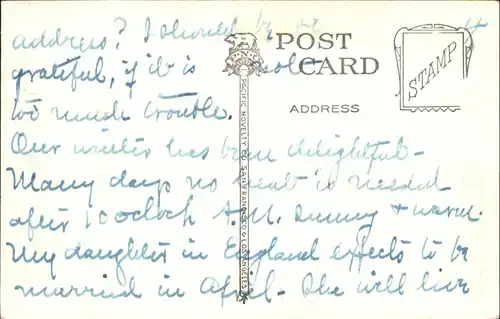 address? I should be so
grateful, if it is not
too much trouble.
Our winter has been delightful -
Many days no heat is needed
after 10 oclock A.M. Sunny & warm.
My daughter in England expects to be
married in April. She will live
POST
CARD
ADDRESS
STAMP
PACIFIC NOVELTY CO. SAN FRANCISCO & LOS ANGELES